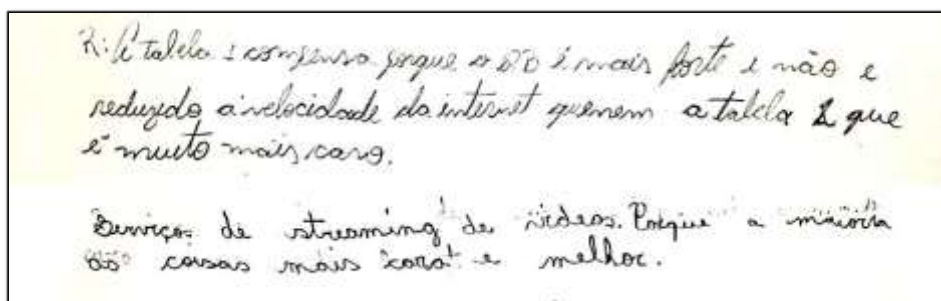 R: A tabela 1 compensa porque o DVD é mais forte e não e
reduzido a velocidade da internet quenem a tabela 2 que
é muito mais caro.
Serviços de streaming de videos. Porque a maioria
das coisas mais cara e melhor.